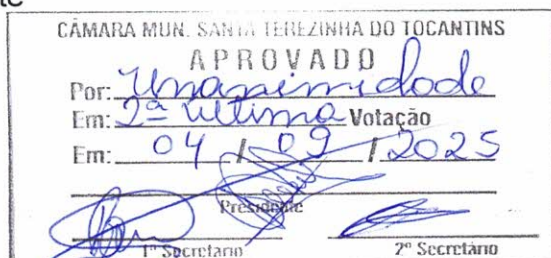 te
CÂMARA MUN. SANTA TEREZINHA DO TOCANTINS
APROVADO
Por: Unanimidade
Em: 2ª última Votação
Em: 04 / 09 / 2025
Presidente
1º Secretário 2º Secretário